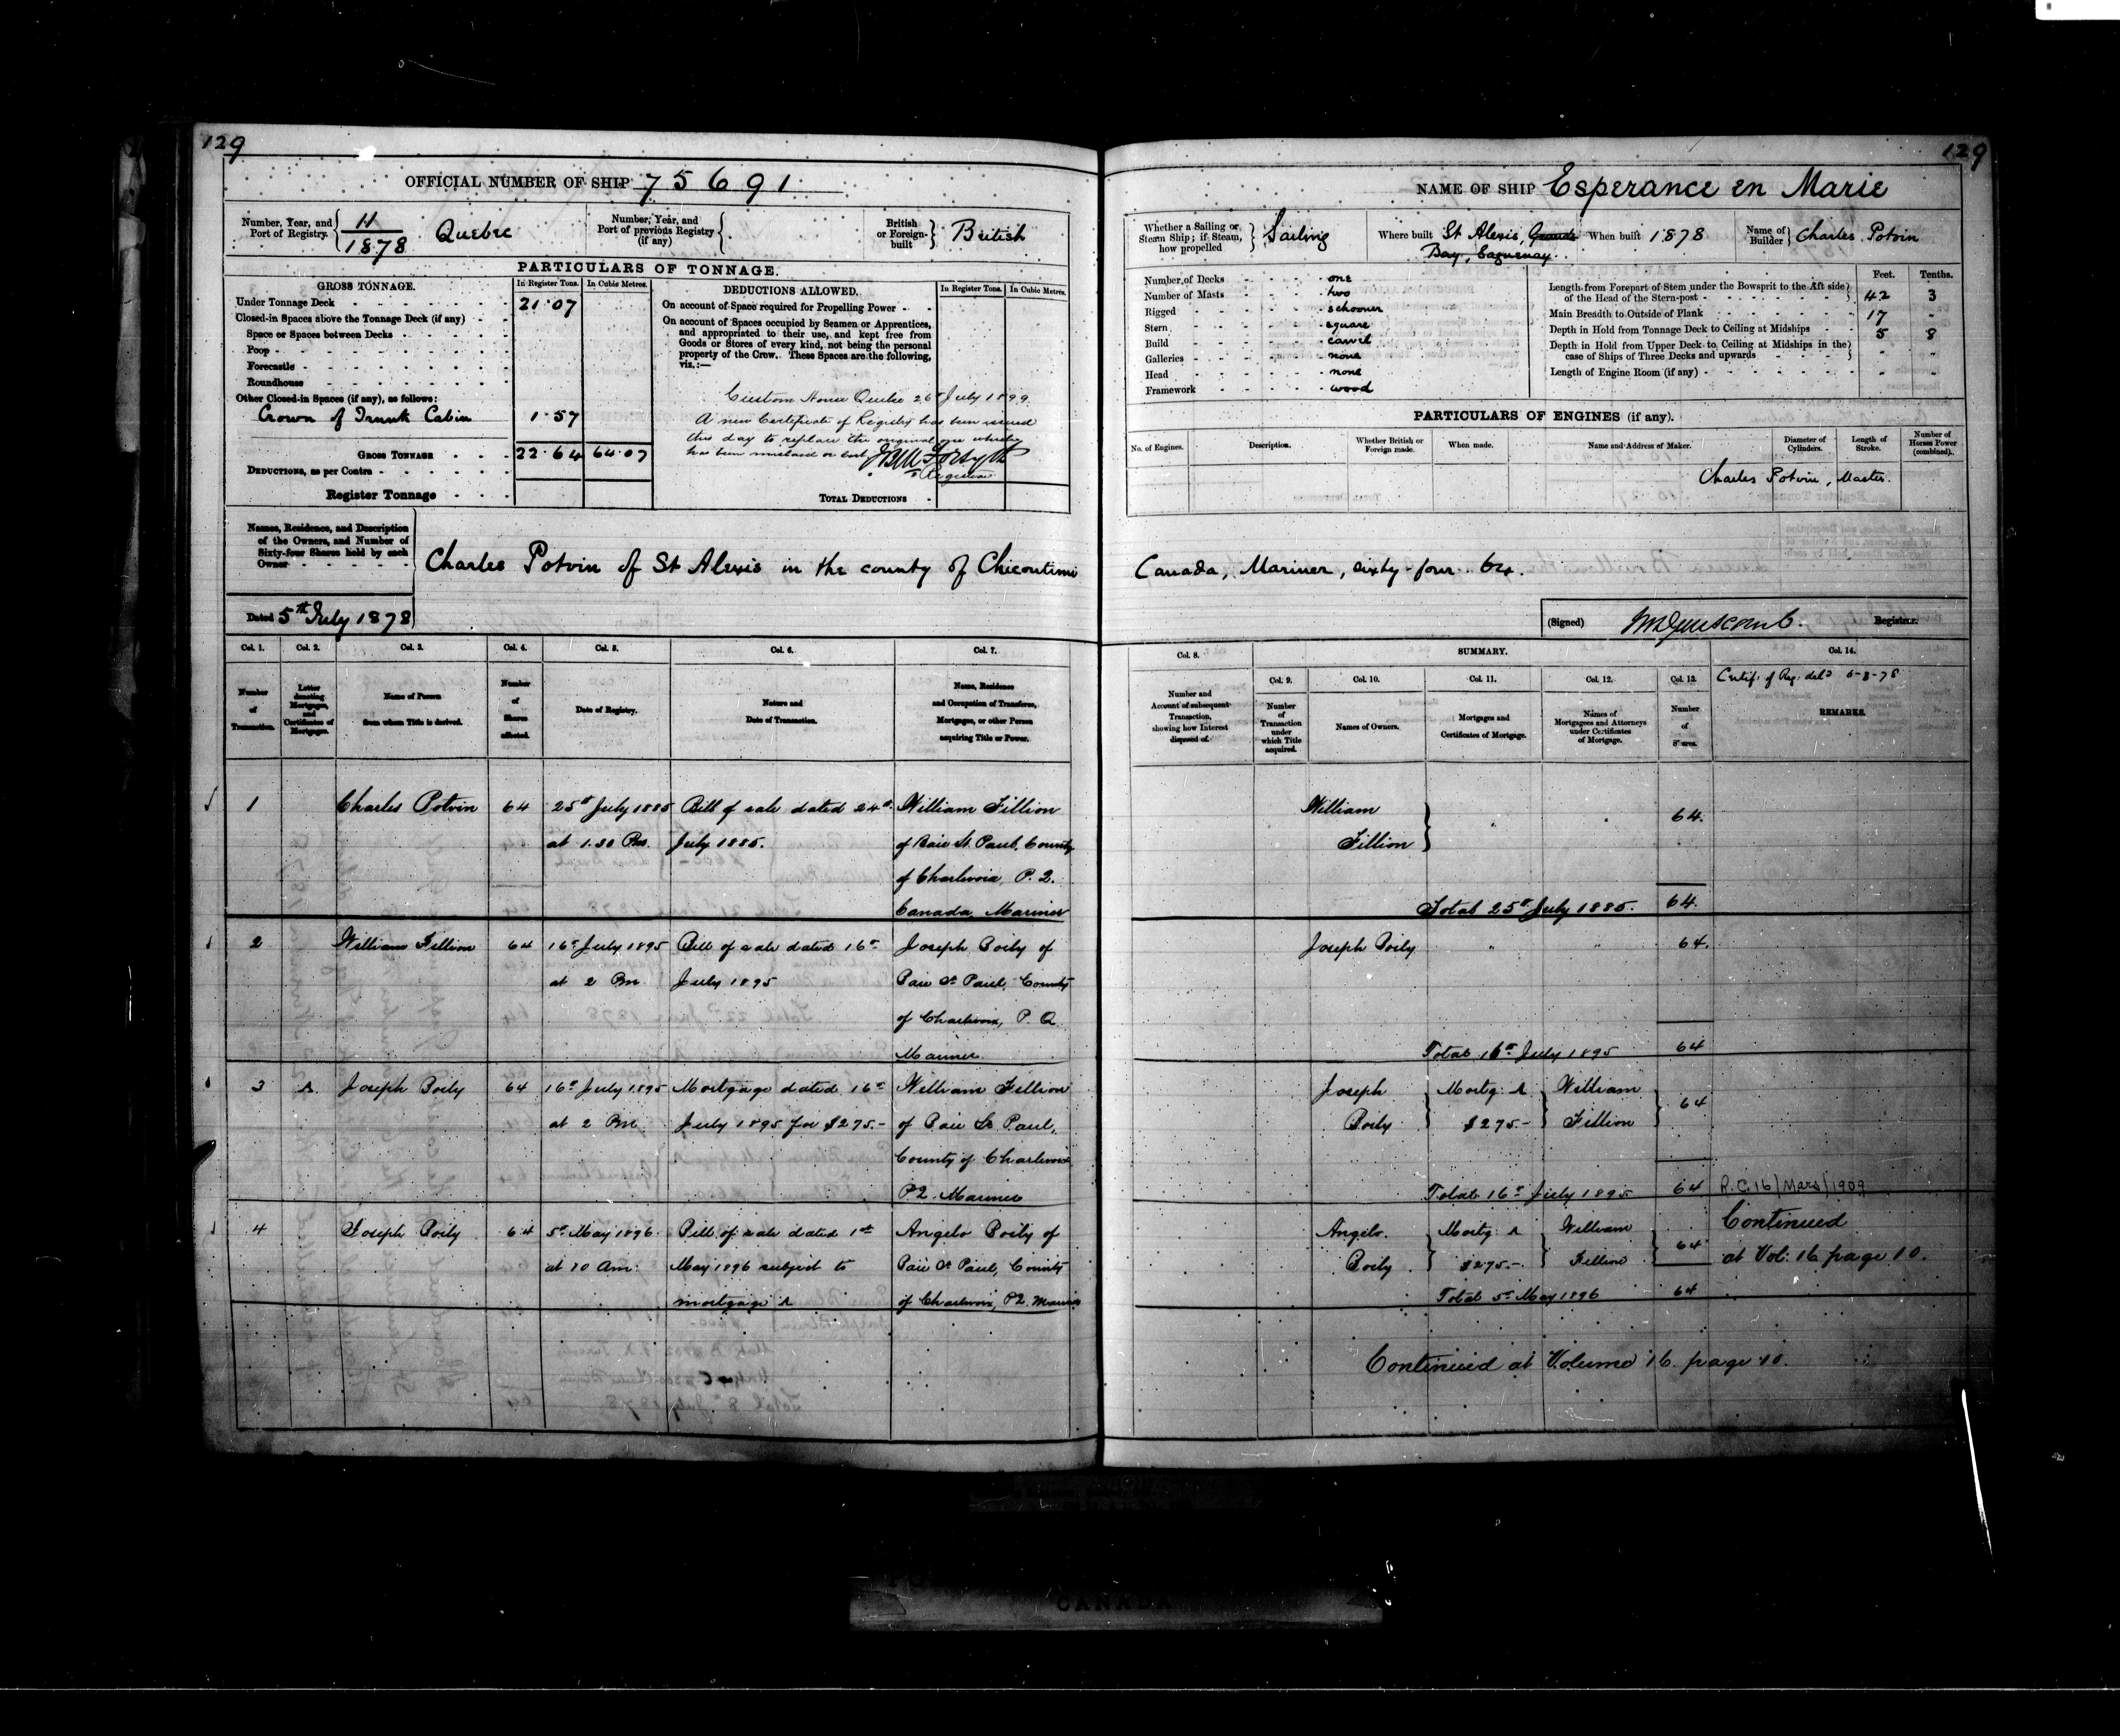 129
OFFICIAL NUMBER OF SHIP 75691
Number, Year, and Port of Registry. 11/1878 Quebec
Number, Year, and Port of previous Registry (if any)
British or Foreign-built British
PARTICULARS OF TONNAGE.
GROSS TONNAGE. In Register Tons. In Cubic Metres.
Under Tonnage Deck 21.07
Closed-in Spaces above the Tonnage Deck (if any)
Space or Spaces between Decks
Poop
Forecastle
Roundhouse
Other Closed-in Spaces (if any), as follows:
Crown of Trunk Cabin 1.57
GROSS TONNAGE 22.64 64.07
DEDUCTIONS, as per Contra
Register Tonnage
DEDUCTIONS ALLOWED. In Register Tons. In Cubic Metres.
On account of Space required for Propelling Power
On account of Spaces occupied by Seamen or Apprentices,
and appropriated to their use, and kept free from
Goods or Stores of every kind, not being the personal
property of the Crew. These Spaces are the following,
viz.:—
Custom House Quebec 26 July 1899
A new Certificate of Registry has been issued
this day to replace the original one which
has been mislaid or lost
Registrar
TOTAL DEDUCTIONS
Names, Residence, and Description
of the Owners, and Number of
Sixty-four Shares held by each
Owner
Charles Potvin of St Alexis in the county of Chicoutimi
Dated 5th July 1878
Col. 1. Col. 2. Col. 3. Col. 4. Col. 5. Col. 6. Col. 7.
Number of Transaction.
Letter denoting Mortgages, and Certificates of Mortgages.
Name of Person from whom Title is derived.
Number of Shares affected.
Date of Registry.
Nature and Date of Transaction.
Name, Residence and Occupation of Transferee, Mortgagee, or other Person acquiring Title or Power.
1 Charles Potvin 64 25th July 1885 Bill of sale dated 24th William Fillion
at 1.30 Pm. July 1885. of Baie St. Paul, County
of Charlevoix, P.Q.
Canada, Mariner
2 William Fillion 64 16th July 1895 Bill of sale dated 16th Joseph Boily of
at 2 Pm July 1895 Baie St Paul, County
of Charlevoix, P.Q
Mariner
3 A Joseph Boily 64 16th July 1895 Mortgage dated 16th William Fillion
at 2 Pm July 1895 for $275.- of Baie St Paul,
County of Charlevoix
P.Q. Mariner
4 Joseph Boily 64 5th May 1896 Bill of sale dated 1st Angelo Boily of
at 10 Am. May 1896 subject to Baie St Paul, County
mortgage A of Charlevoix, PQ. Mariner
129
NAME OF SHIP Esperance en Marie
Whether a Sailing or Steam Ship; if Steam, how propelled Sailing
Where built St Alexis, Grande Bay, Saguenay. When built 1878
Name of Builder Charles Potvin
Number of Decks one
Number of Masts two
Rigged schooner
Stern square
Build carvel
Galleries none
Head none
Framework wood
Feet. Tenths.
Length from Forepart of Stem under the Bowsprit to the Aft side
of the Head of the Stern-post 42 3
Main Breadth to Outside of Plank 17 "
Depth in Hold from Tonnage Deck to Ceiling at Midships 5 8
Depth in Hold from Upper Deck to Ceiling at Midships in the
case of Ships of Three Decks and upwards " "
Length of Engine Room (if any) " "
PARTICULARS OF ENGINES (if any).
No. of Engines. Description. Whether British or Foreign made. When made. Name and Address of Maker. Diameter of Cylinders. Length of Stroke. Number of Horses Power (combined).
Charles Potvin, Master.
Canada, Mariner, sixty-four 64.
(Signed) Registrar.
Col. 8. SUMMARY. Col. 14.
Col. 9. Col. 10. Col. 11. Col. 12. Col. 13.
Number and Account of subsequent Transaction, showing how Interest disposed of.
Number of Transaction under which Title acquired.
Names of Owners.
Mortgages and Certificates of Mortgage.
Names of Mortgagees and Attorneys under Certificates of Mortgage.
Number of Shares.
Certif. of Reg. deld 6-8-78
REMARKS.
William
Fillion " " 64.
Total 25th July 1885. 64.
Joseph Boily " " 64.
Total 16th July 1895 64
Joseph Mortg. A William
Boily $275.- Fillion 64
Total 16th July 1895 64 R.C. 16/Mars/1909
Angelo Mortg. A William Continued
Boily $275.- Fillion 64 at Vol: 16 page 10.
Total 5th May 1896 64
Continued at Volume 16 page 10.
CANADA